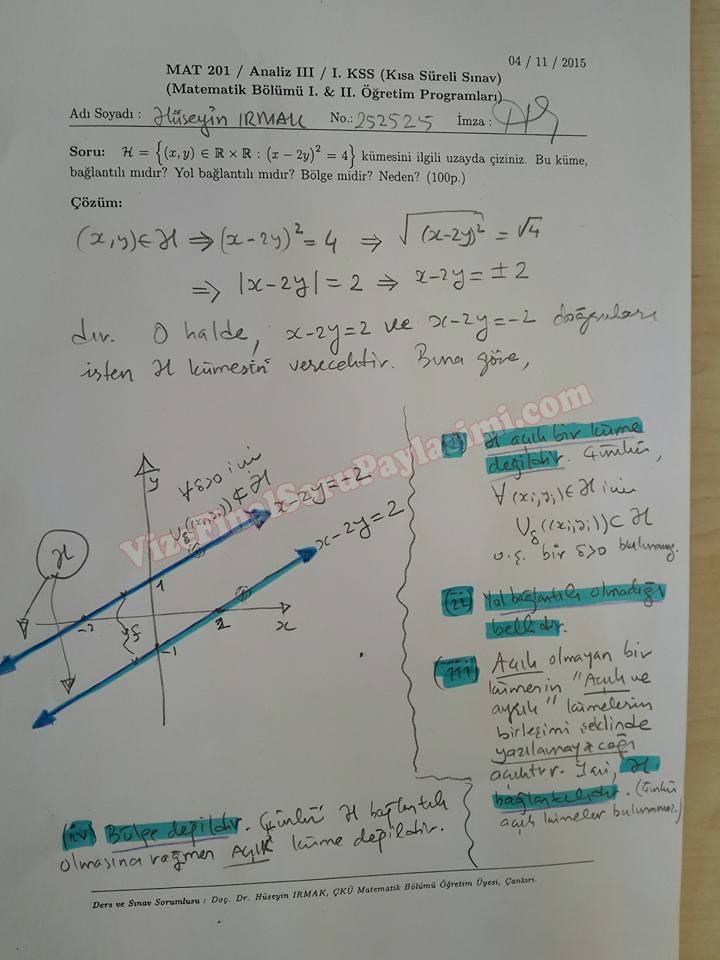 04 / 11 / 2015
MAT 201 / Analiz III / I. KSS (Kısa Süreli Sınav)
(Matematik Bölümü I. & II. Öğretim Programları)
Adı Soyadı : Hüseyin IRMAK No.: 252525 İmza :
Soru: H = {(x, y) ∈ R × R : (x − 2y)² = 4} kümesini ilgili uzayda çiziniz. Bu küme,
bağlantılı mıdır? Yol bağlantılı mıdır? Bölge midir? Neden? (100p.)
Çözüm:
(x,y)∈H ⇒ (x-2y)²=4 ⇒ √(x-2y)² = √4
⇒ |x-2y| = 2 ⇒ x-2y = ±2
dır. O halde, x-2y=2 ve x-2y=-2 doğruları
isten H kümesini verecektir. Buna göre,
y
∀δ>0 için
U_δ((x_i,y_i)) ⊄ H
x-2y=-2
x-2y=2
H
1
-2
2
x
-1
(i) H açık bir küme
değildir. Çünkü,
∀(x_i,y_i)∈H için
U_δ((x_i,y_i))⊂H
o.ş. bir δ>0 bulunmaz.
(ii) Yol bağlantılı olmadığı
bellidir.
(iii) Açık olmayan bir
kümenin "Açık ve
ayrık" kümelerin
birleşimi şeklinde
yazılamayacağı
açıktır. Yani, H
bağlantılıdır. (Çünkü
açık kümeler bulunmaz.)
(iv) Bölge değildir. Çünkü H bağlantılı
olmasına rağmen AÇIK küme değildir.
Ders ve Sınav Sorumlusu : Doç. Dr. Hüseyin IRMAK, ÇKÜ Matematik Bölümü Öğretim Üyesi, Çankırı.
Vize-FinalSoruPaylasimi.com